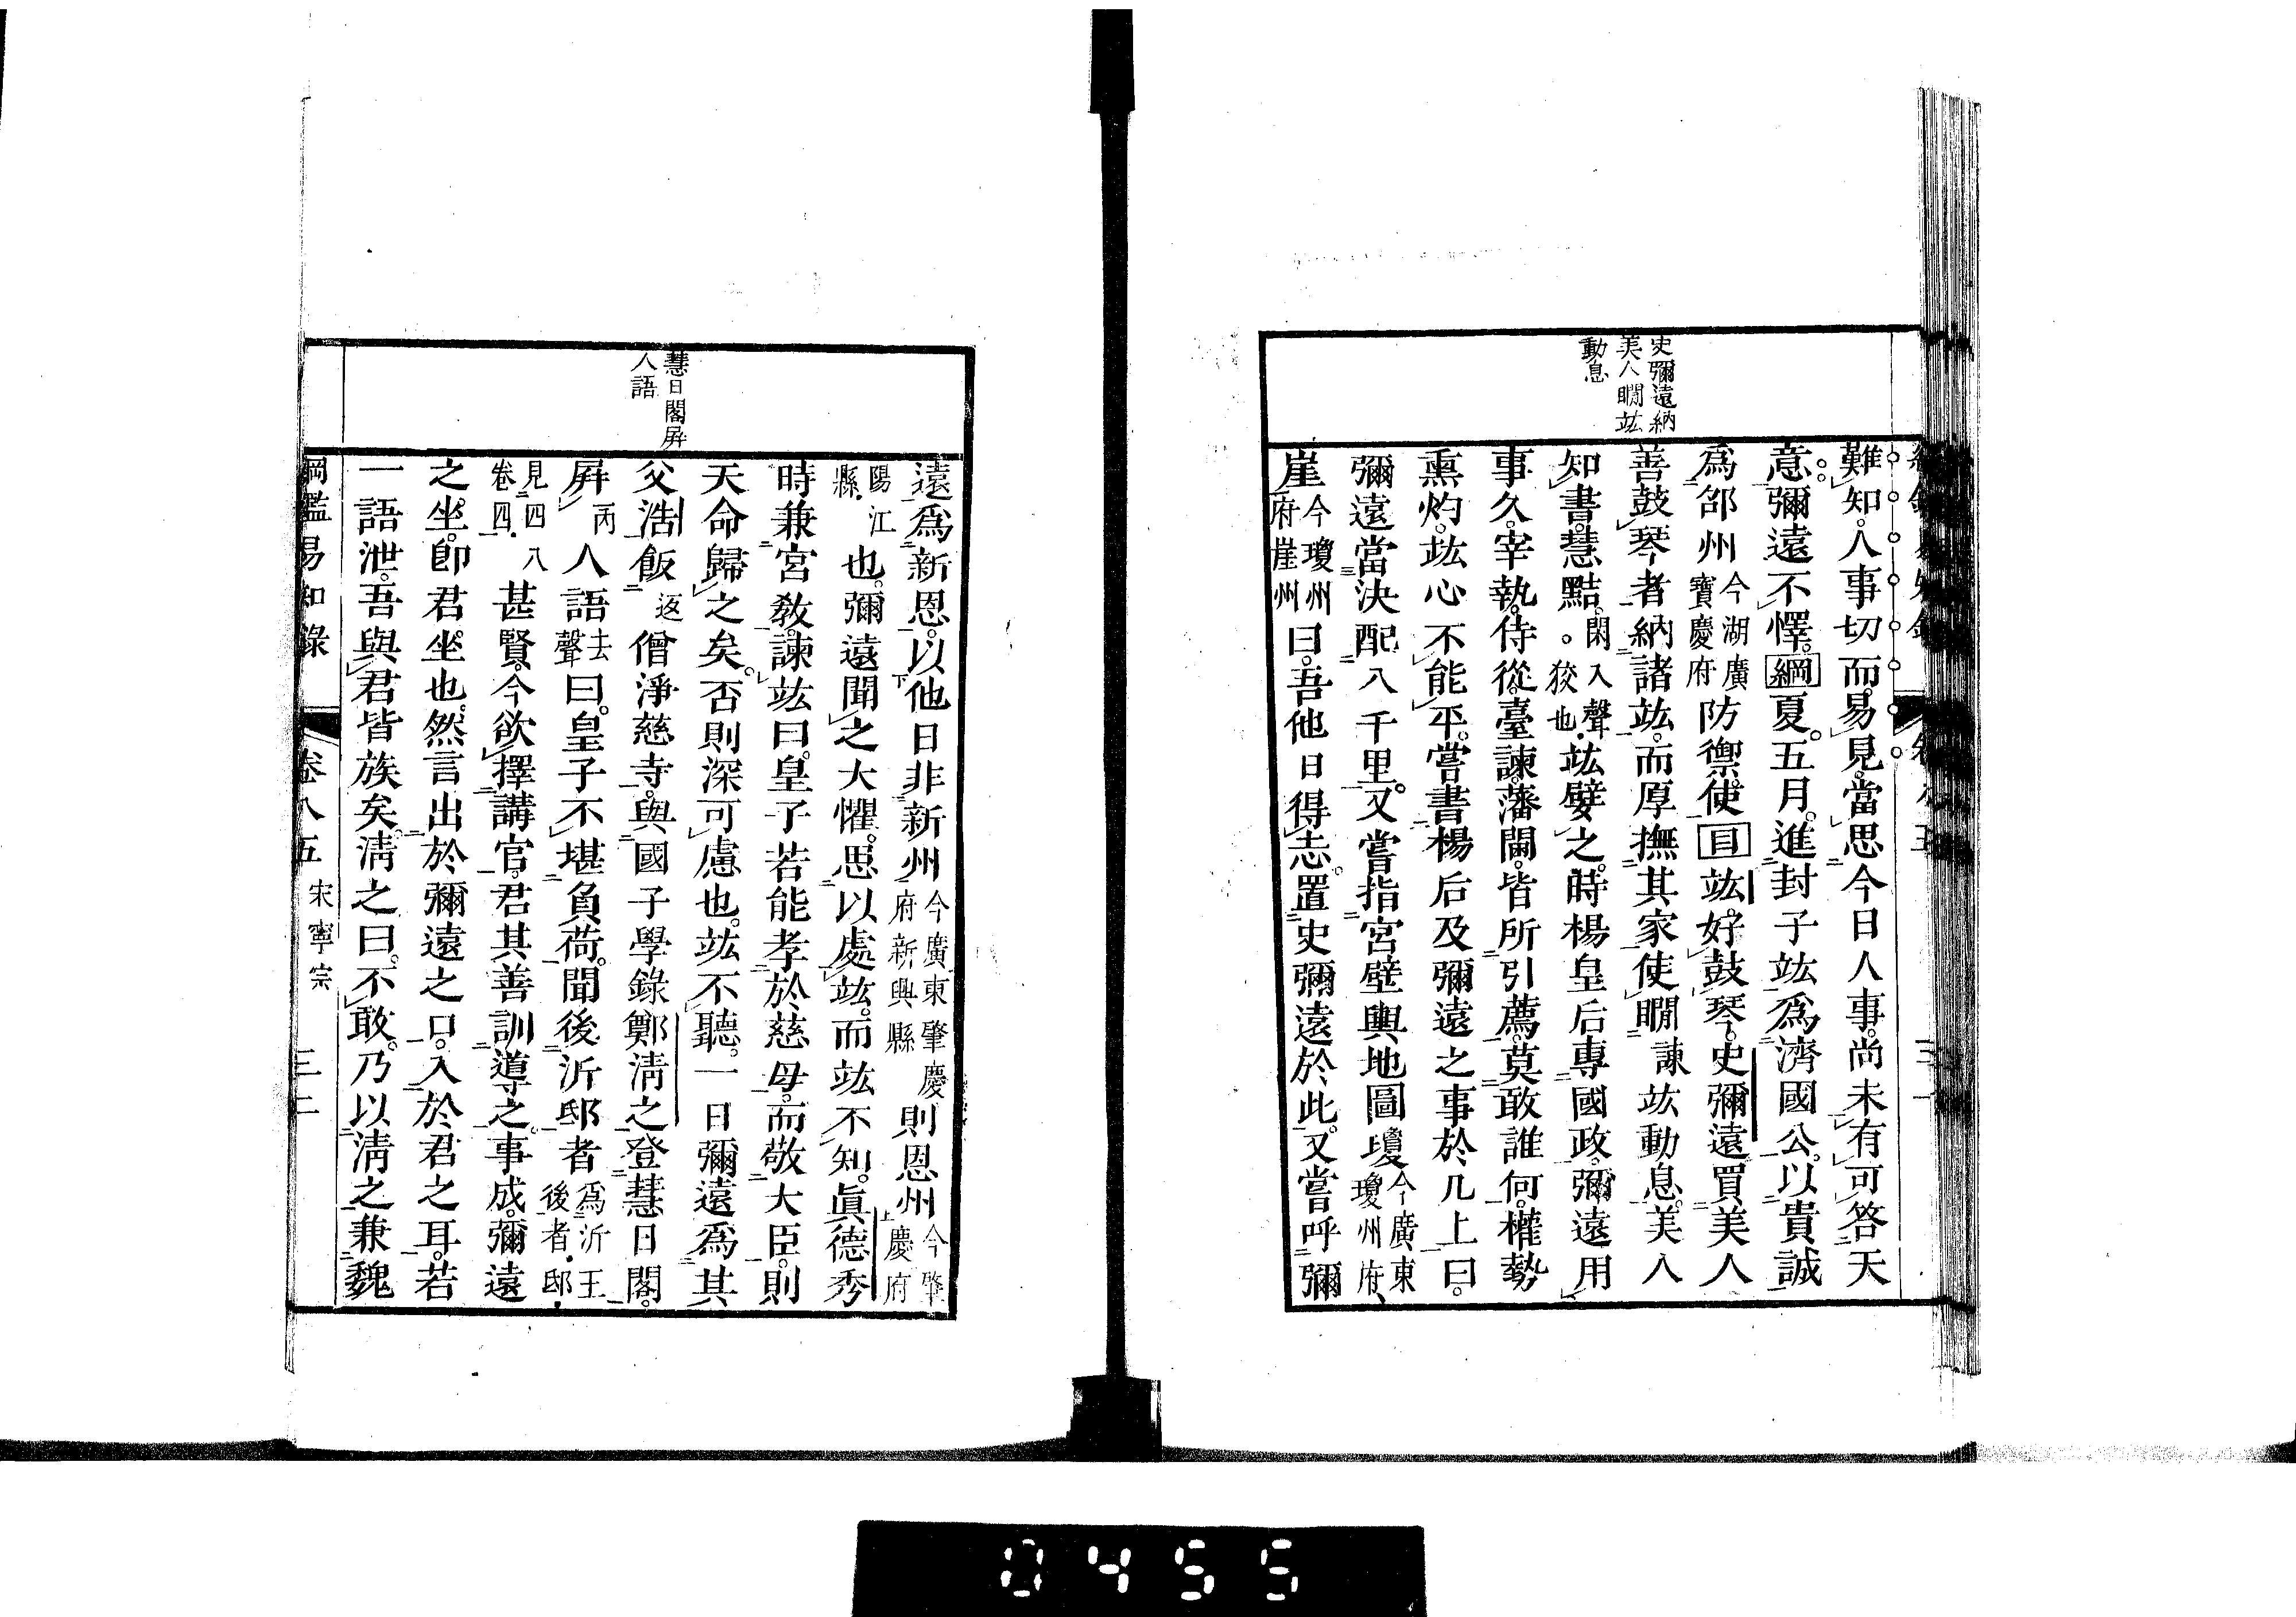 史彌遠納
美人瞯竑
動息
難知。人事切而易見。當思今日人事。尚未有可答天
意。彌遠不懌。綱夏。五月。進封子竑爲濟國公。以貴誠
爲邵州今湖廣寶慶府防禦使。目竑好鼓琴。史彌遠買美人
善鼓琴者納諸竑。而厚撫其家使瞯諫竑動息。美人
知書。慧黠。閑入聲。狡也。竑嬖之。時楊皇后專國政。彌遠用
事久。宰執。侍從。臺諫。藩閫。皆所引薦。莫敢誰何。權勢
熏灼。竑心不能平。嘗書楊后及彌遠之事於几上曰。
彌遠當決配八千里。又嘗指宮壁輿地圖瓊今廣東瓊州府、
崖今瓊州府崖州曰。吾他日得志。置史彌遠於此。又嘗呼彌
慧日閣屛
人語
遠爲新恩。以他日非新州今廣東肇慶府新興縣則恩州今肇慶府
陽江縣。也。彌遠聞之大懼。思以處竑。而竑不知。眞德秀
時兼宮敎。諫竑曰。皇子若能孝於慈母。而敬大臣。則
天命歸之矣。否則深可慮也。竑不聽。一日彌遠爲其
父浩飯返僧淨慈寺。與國子學錄鄭淸之登慧日閣。
屛丙人語去聲曰。皇子不堪負荷。聞後沂邸者爲沂王後者。邸。
見四八卷四。甚賢。今欲擇講官。君其善訓導之。事成。彌遠
之坐。卽君坐也。然言出於彌遠之口。入於君之耳。若
一語泄。吾與君皆族矣。淸之曰。不敢。乃以淸之兼魏
綱鑑易知錄 卷八五 宋寧宗 三二